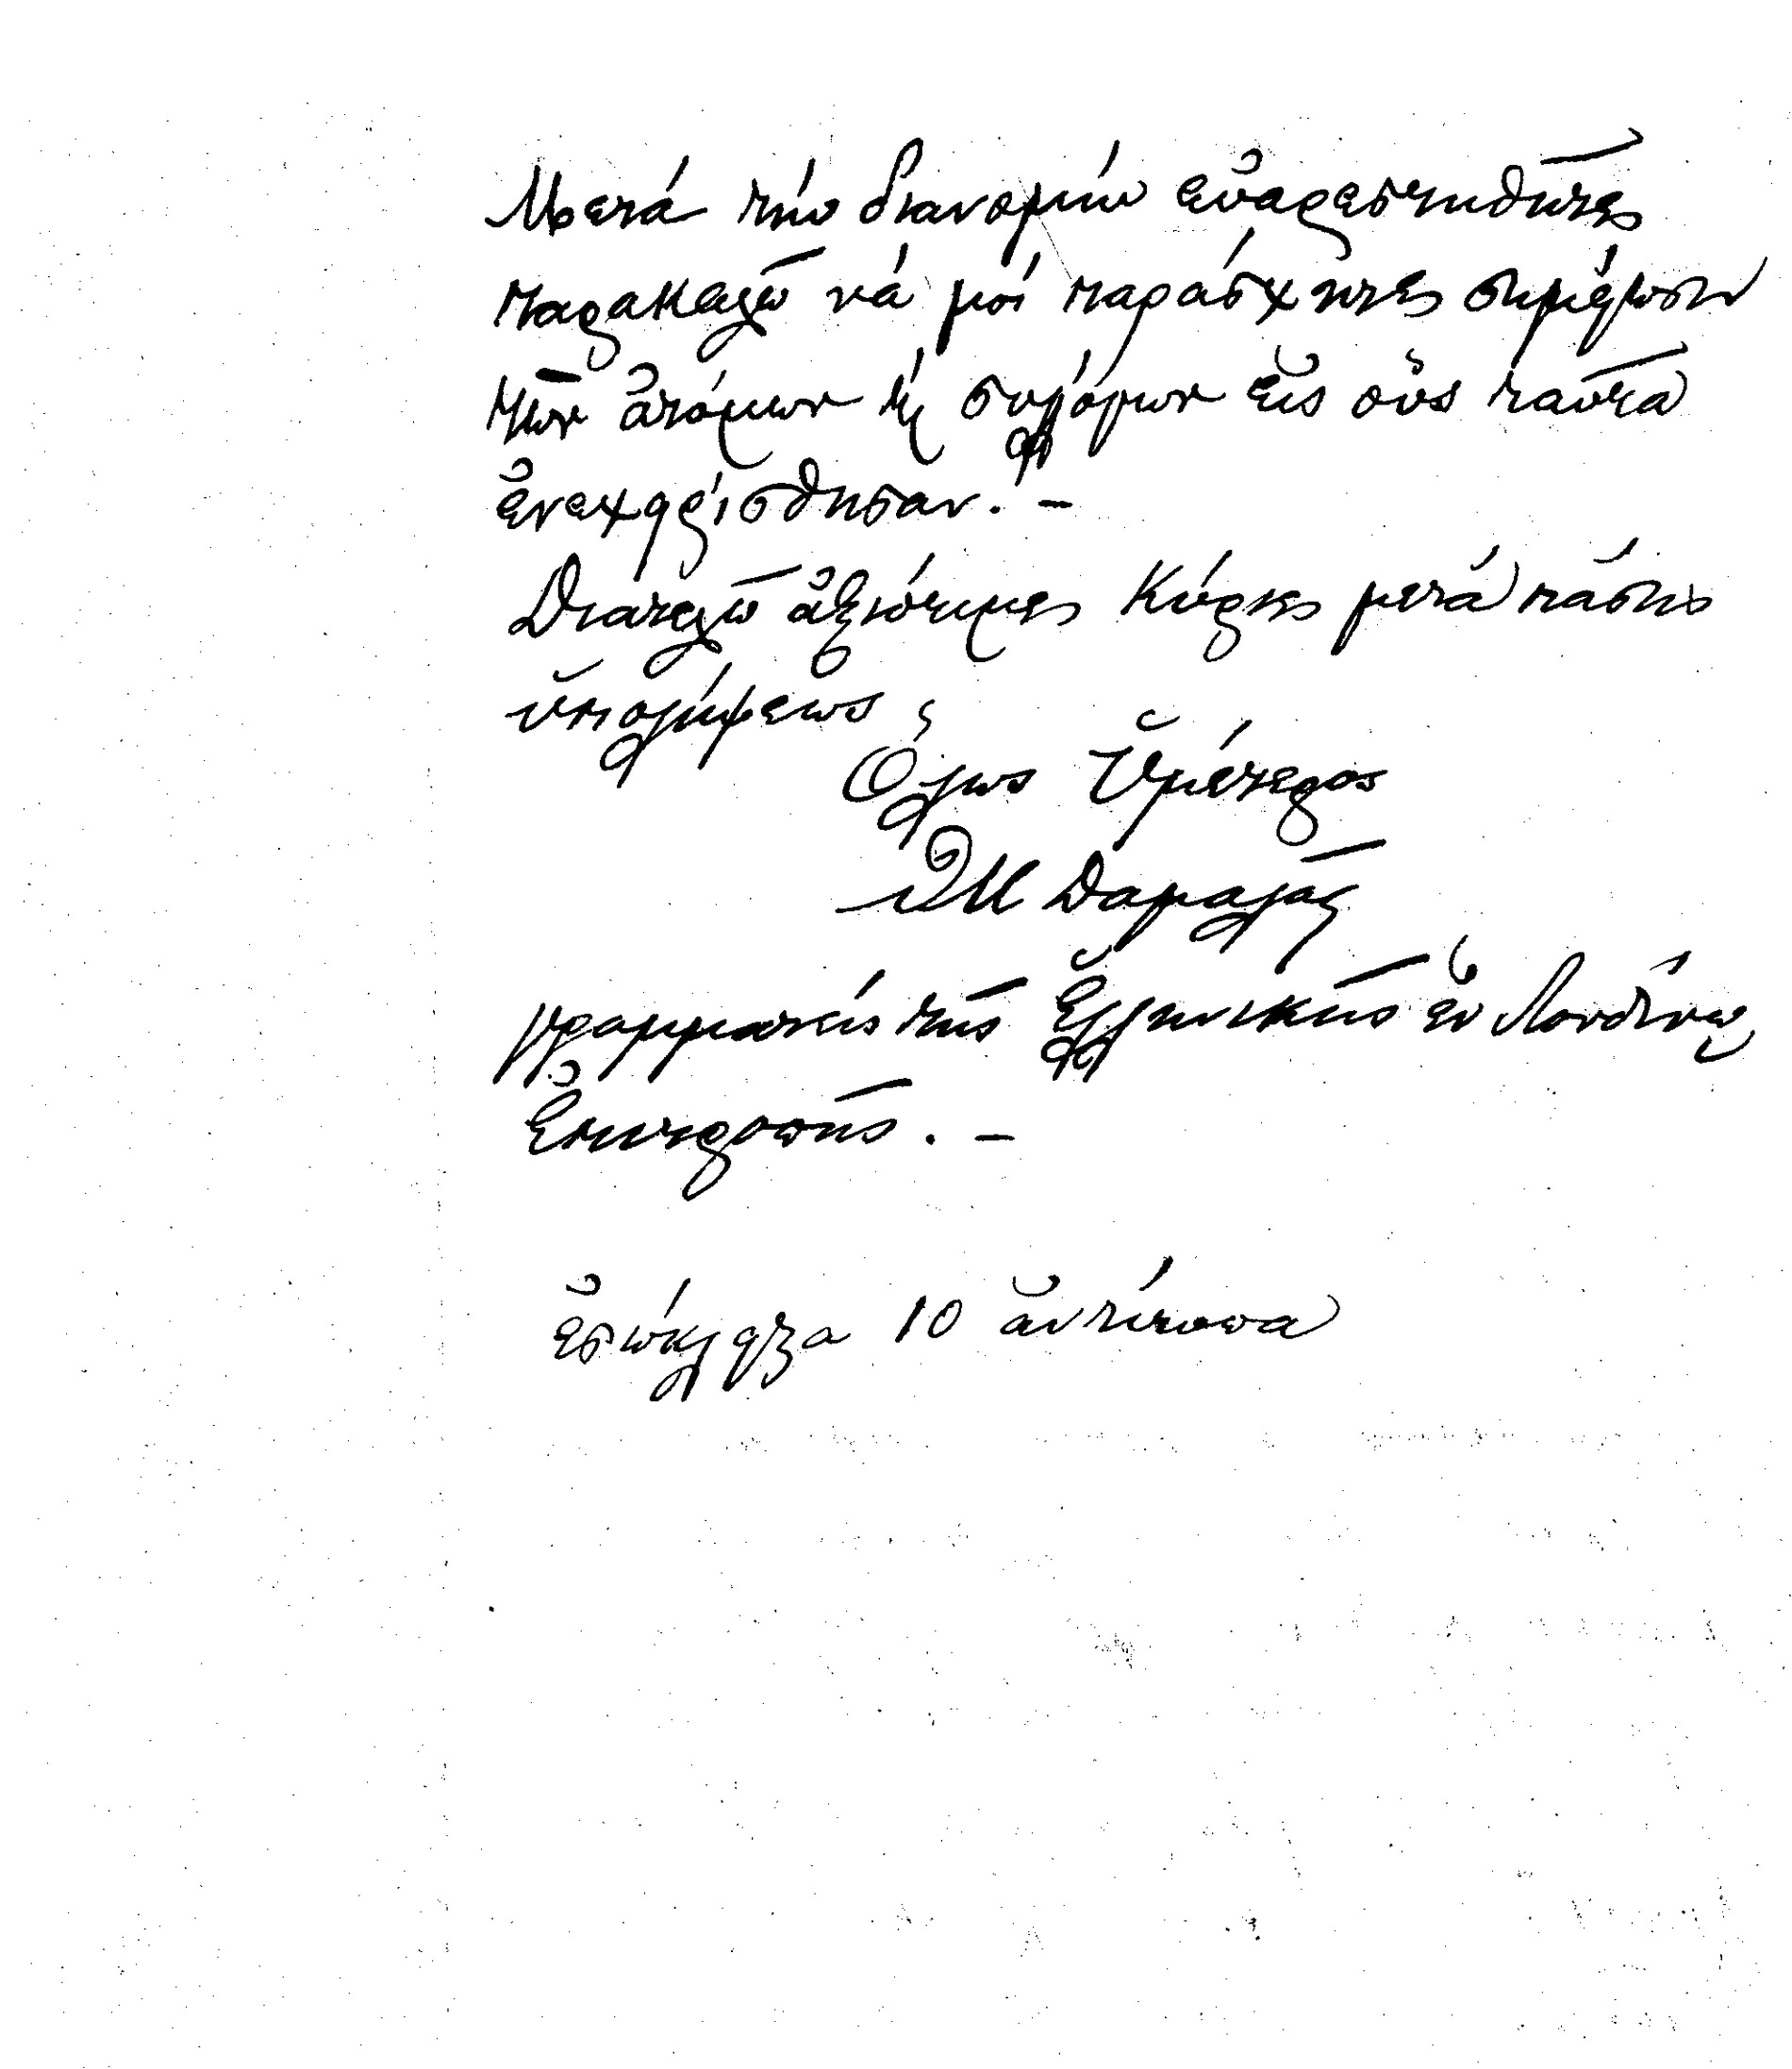 Μετά τήν διανομήν εὐαρεστηθῆτε
παρακαλῶ νά μοί παράσχητε σημείωσιν
τῶν ἀτόμων ἤ συλλόγων εἰς οὕς ταῦτα
ἐνεχειρίσθησαν. –
Διατελῶ ἀξιότιμε Κύριε μετά πάσης
ὑπολήψεως,
Ὅλως Ὑμέτερος
Μ Δαμαλᾶς
γραμματεύς τῆς Ἑλληνικῆς ἐν Λονδίνῳ
Ἐπιτροπῆς. –
ἐσώκλειστα 10 ἀντίτυπα